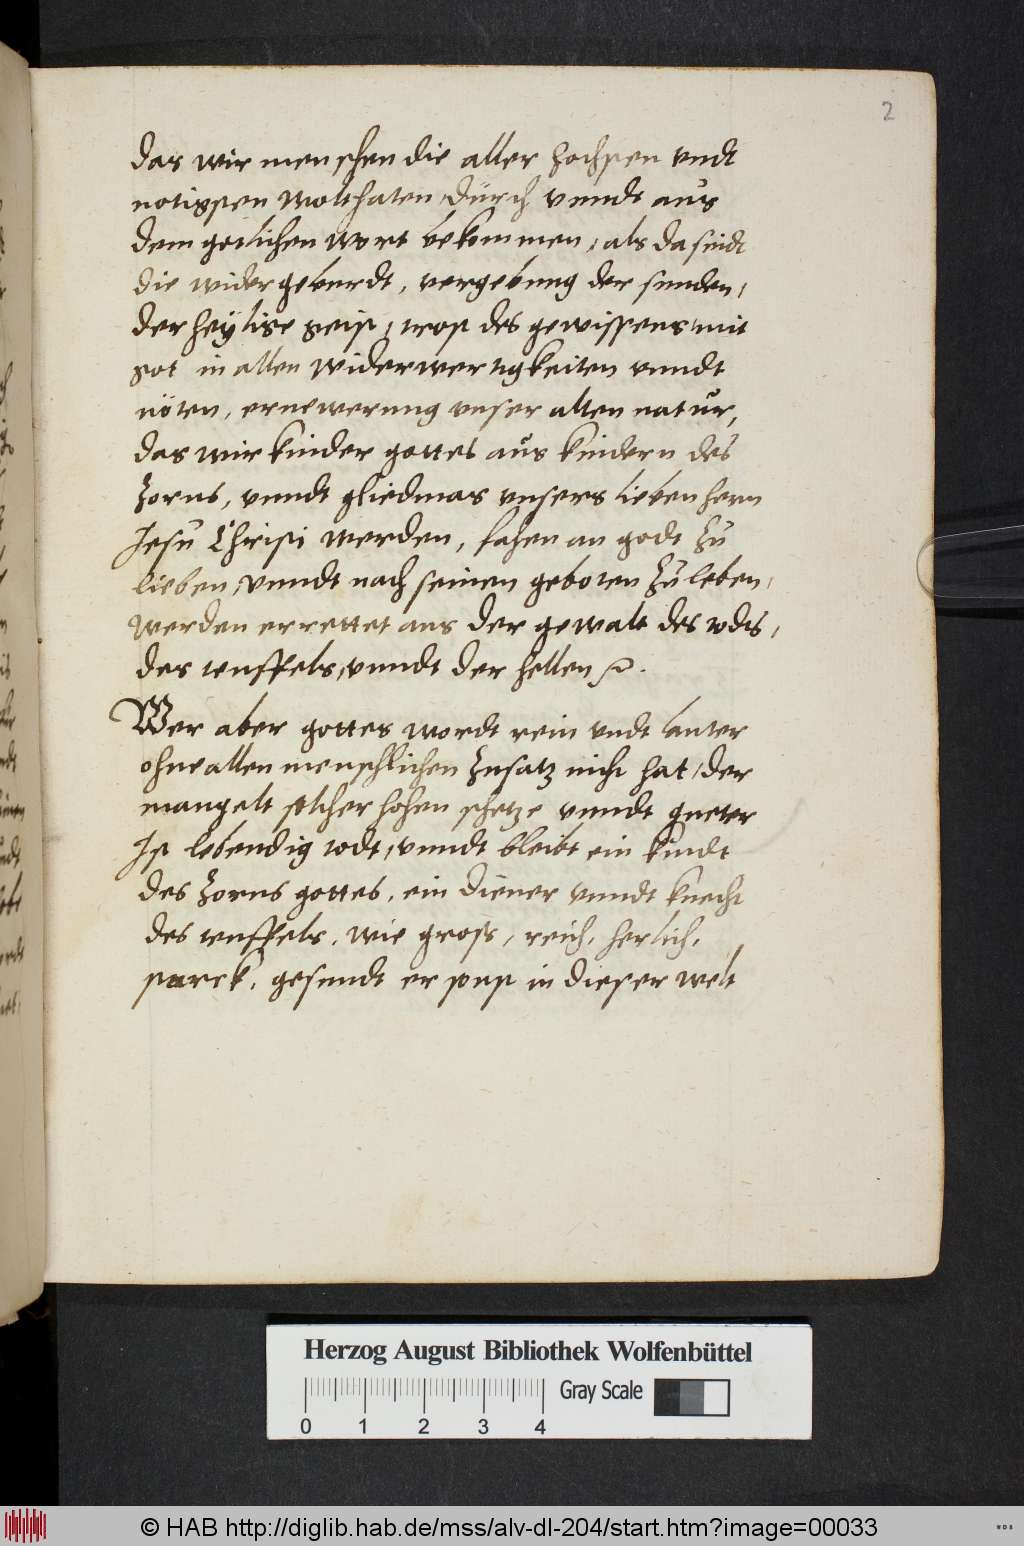 2
das wir menschen die aller hochsten vndt
notigsten wolthaten durch vnndt aus
dem gotlichen wort bekommen, als da seindt
die widergeburdt, vergebung der sunden,
der heylige geist, trost des gewissens mit
got in allen widerwertigkeiten vnndt
nöten, ernewerung vnser alten natur,
das wir kinder gottes aus kindern des
zorns, vnndt gliedmas vnsers lieben hern
Jesu Christi werden, fahen an godt zu
lieben, vnndt nach seinen geboten zu leben,
werden errettet aus der gewalt des todts,
des teuffels, vnndt der hellen
Wer aber gottes wordt rein vndt lauter
ohne allen menschlichen zusatz nicht hat, der
mangelt solcher hohen schetze vnndt gueter
Ist lebendig todt, vnndt bleibt ein kindt
des zorns gottes, ein diener vnndt knecht
des teuffels, wie gross, reich, herlich,
starck, gesundt er sonst in dieser welt
Herzog August Bibliothek Wolfenbüttel
Gray Scale
0 1 2 3 4
© HAB http://diglib.hab.de/mss/alv-dl-204/start.htm?image=00033